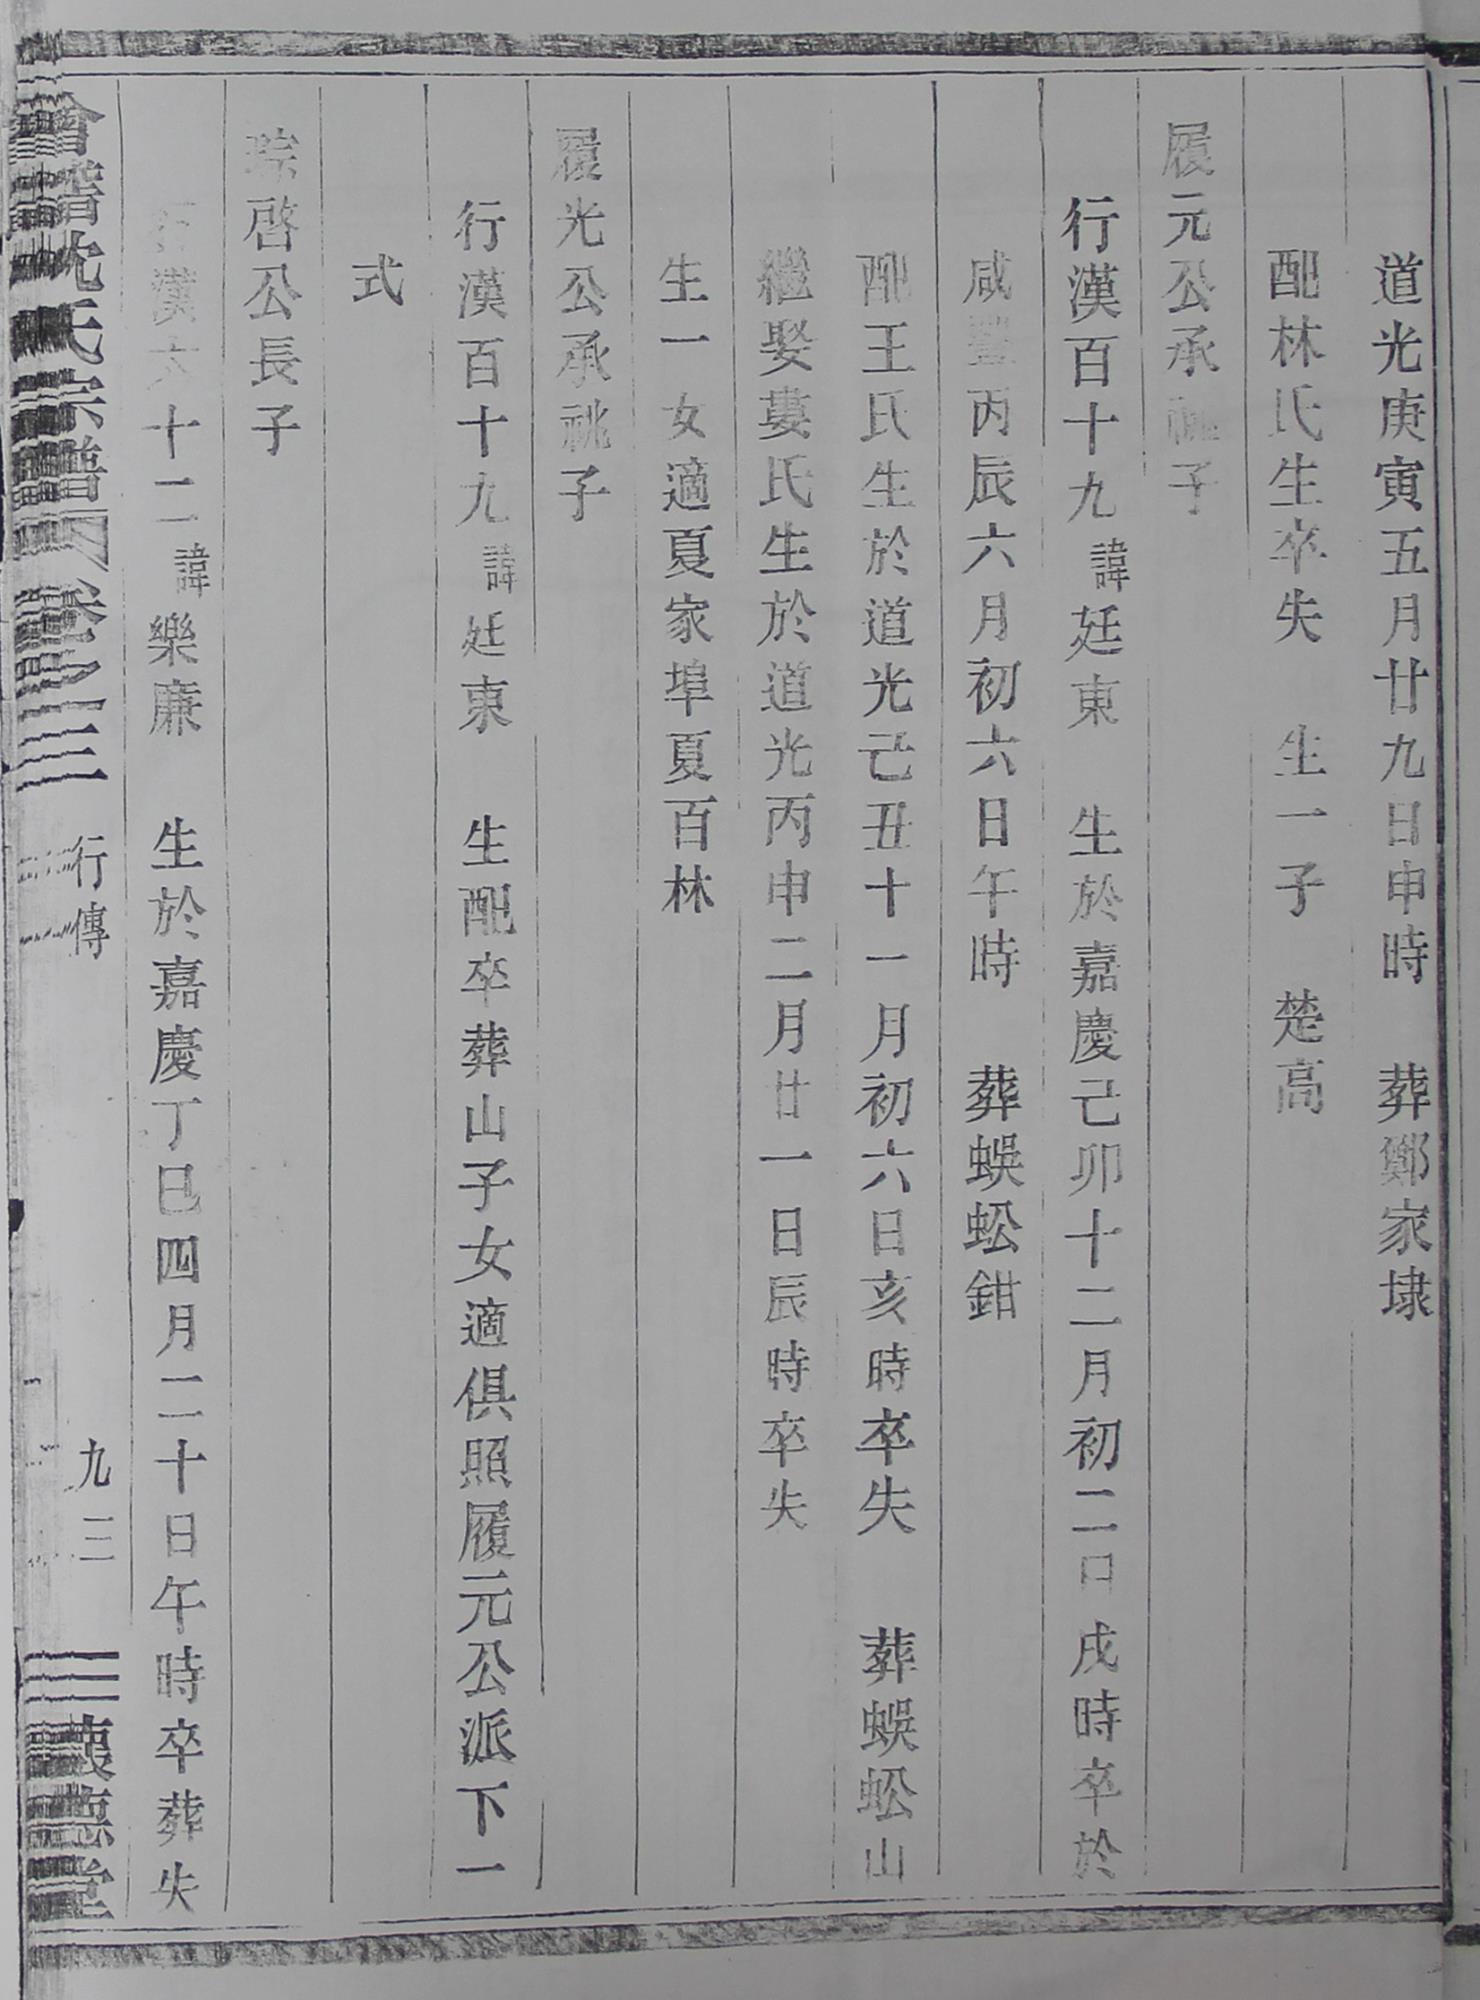 道光庚寅五月廿九日申時　葬鄭家埭
配林氏生卒失　生一子　楚高
履元公承祧子
行漢百十九諱廷東　生於嘉慶己卯十二月初二日戌時卒於
咸豐丙辰六月初六日午時　葬蜈蚣鉗
配王氏生於道光己丑十一月初六日亥時卒失　葬蜈蚣山
繼娶婁氏生於道光丙申二月廿一日辰時卒失
生一女適夏家埠夏百林
履光公承祧子
行漢百十九諱廷東　生配卒葬山子女適俱照履元公派下一
式
琮啓公長子
行漢六十二諱樂廉　生於嘉慶丁巳四月二十日午時卒葬失
會稽沈氏宗譜　卷之三　行傳　九三　懷德堂